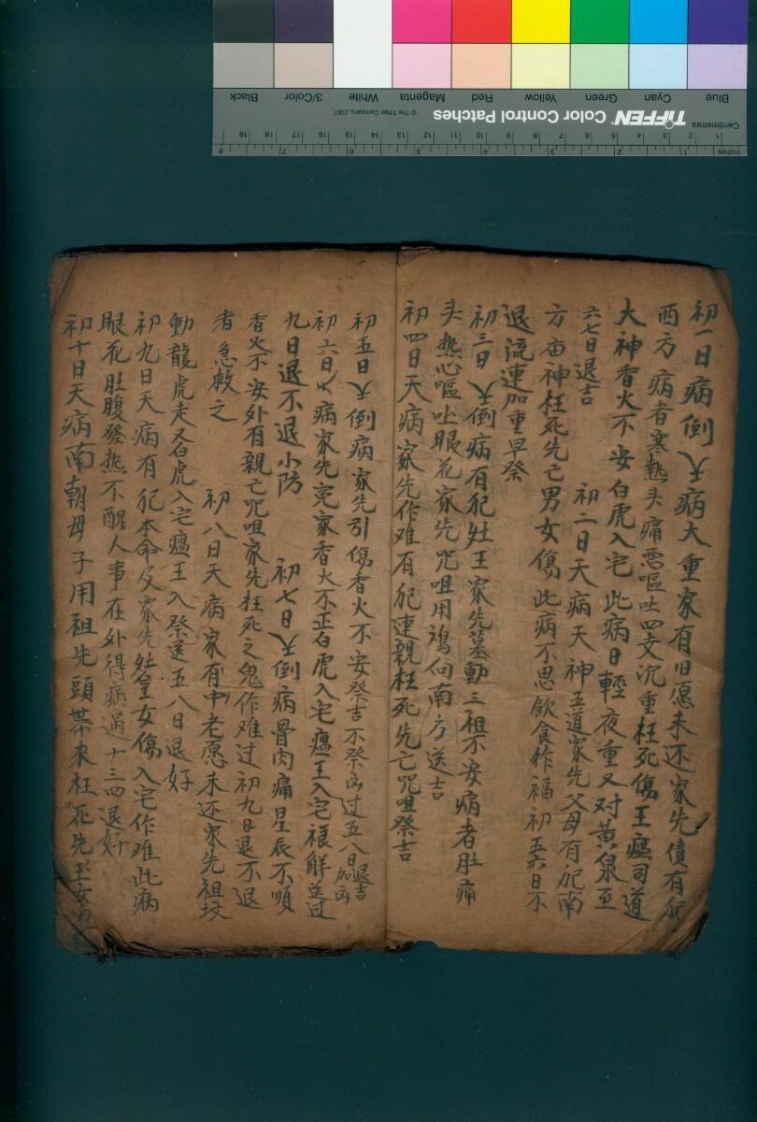 Blue Cyan Green Yellow Red Magenta White 3/Color Black
Centimetres TIFFEN Color Control Patches © The Tiffen Company, 2007
1 2 3 4 5 6 7 8 9 10 11 12 13 14 15 16 17 18 19
Inches 1 2 3 4 5 6 7 8
初一日病倒天病大重家有旧愿未还家先債有犯
西方病者寒熱头痛悪嘔吐四支沉重枉死傷王瘟司道
大神香火不安白虎入宅此病日輕夜重又对黄泉至
六七日退吉 初二日天病天神五道家先父母有犯南
方由神枉死先亡男女傷此病不思飲食作福初五六日不
退流連加重早祭
初三日天倒病有犯灶王家先墓動三祖不安病者肚痛
头热心嘔吐眼花家先咒咀用鴻向南方送吉
初四日天病家先作难有犯連親枉死先亡咒咀祭吉
初五日天倒病家先引傷香火不安祭吉不祭凶过五八日退吉加凶
初六日天病家先冤家香火不正白虎入宅瘟王入宅禳解送过
九日退不退小防 初七日天倒病骨肉痛星辰不順
香火不安外有親亡咒咀家先枉死之鬼作难过初九日退不退
者急救之 初八日天病家有中老愿未还家先祖坟
動龍虎走又白虎入宅瘟王入祭送五八日退好
初九日天病有犯本命父家先灶皇女傷入宅作难此病
眼花肚腹發热不醒人事在外得病過十三四退好
初十日天病南朝母子用祖先頭帶來枉死先王女